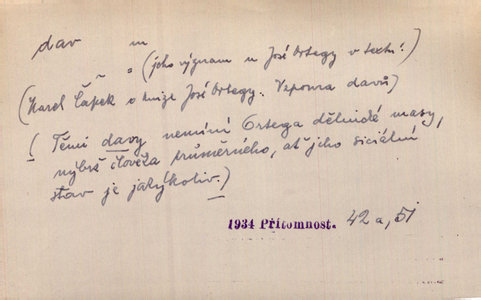 dav m
(jeho význam u José Ortegy v textu!)
(Karel Čapek o knize José Ortegy. Vzpoura davů)
(Těmi davy nemíní Ortega dělnické masy,
nýbrž člověka průměrného, ať jeho sociální
stav je jakýkoliv.)
1934 Přítomnost. 42a, 51